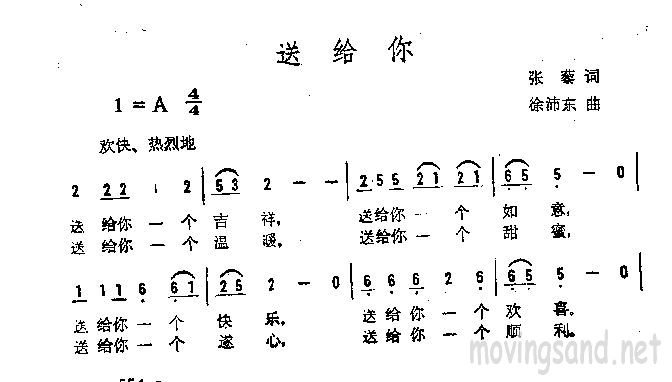 送给你
张藜词
1=A 4/4
徐沛东曲
欢快、热烈地
2 2 2 1 2 | 5 3 2 - - | 2·5 5 2 1 2 1 | 6 5 5 - 0 |
送给你一个吉祥, 送给你一个如意,
送给你一个温暖, 送给你一个甜蜜,
1 1 1 6 6 1 | 2 5 2 - 0 | 6 6 6 2 6 | 6 5 5 - 0 |
送给你一个快乐, 送给你一个欢喜,
送给你一个遂心, 送给你一个顺利。
movingsand.net